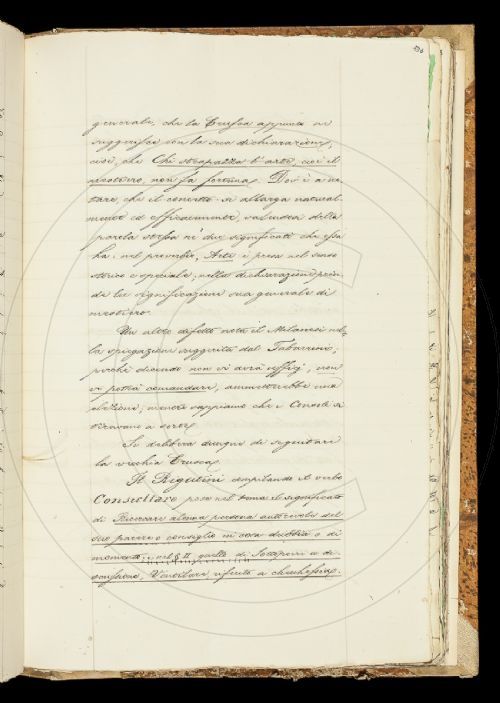 generale, che la Crusca appunto ne
suggerisce con la sua dichiarazione,
cioè, che Chi strapazza l'arte, cioè il
mestiero, non fa fortuna. Poi è a no
tare, che il concetto si allarga natural
mente ed efficacemente, valendosi della
parola stessa ne' due significati che essa
ha; nel proverbio, Arte è presa nel senso
storico e speciale; nella dichiarazione pren
de la significazione sua generale di
mestiero.
Un altro difetto nota il Milanesi nel
la spiegazione suggerita dal Tabarrini,
perchè dicendo non vi avrà uffizj, non
vi potrà comandare, ammetterebbe una
elezione, mentre sappiamo che i Consoli si
tiravano a sorte.
Si delibera dunque di seguitare
la vecchia Crusca.
Il Rigutini compilando il verbo
Consultare pose nel tema il significato
di Ricercare alcuna persona autorevole del
suo parere o consiglio in cosa dubbia o di
momento; e nel § II quello di Sottoporre a di
scussione, Ventilare riferito a chicchessia.